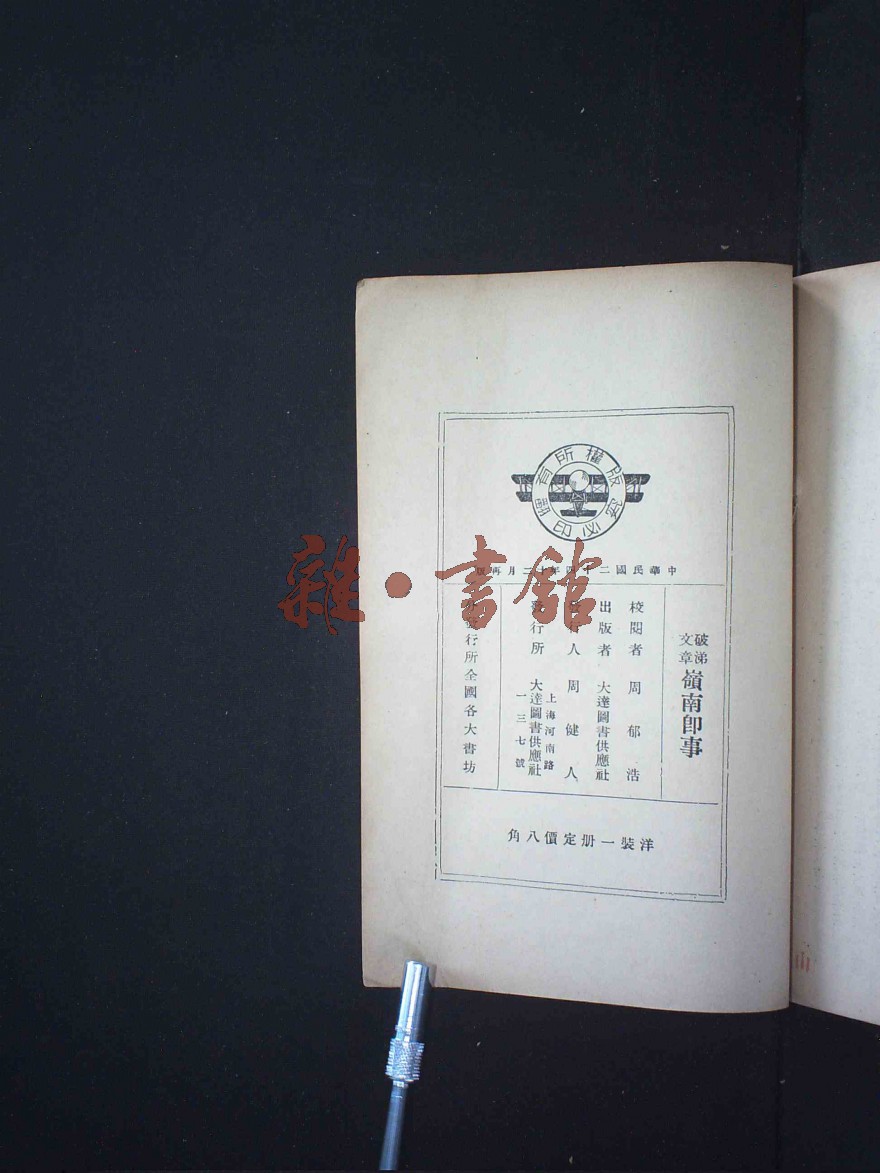 版權所有
翻印必究
中華民國二十四年十二月再版
破涕文章
嶺南卽事
校閱者 周郁浩
出版者 大達圖書供應社
發行人 周健人
發行所 大達圖書供應社
上海河南路
一三七號
分發行所全國各大書坊
洋裝一册定價八角
雜·書館